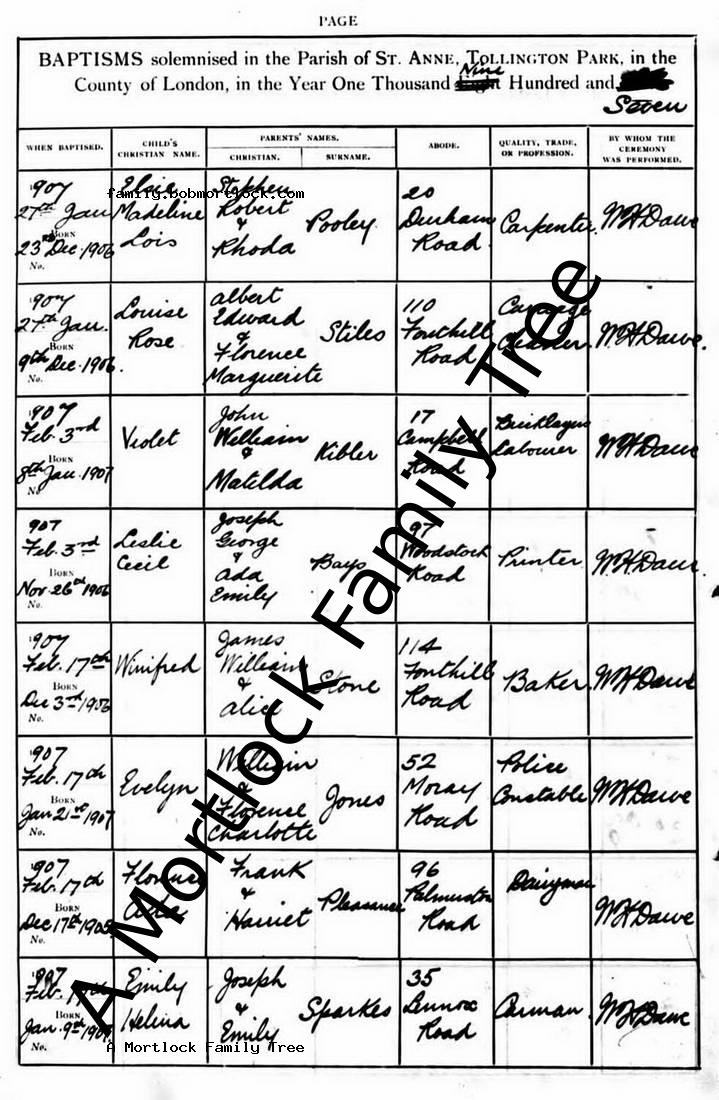 PAGE
BAPTISMS solemnised in the Parish of ST. ANNE, TOLLINGTON PARK, in the
County of London, in the Year One Thousand Nine Hundred and
Seven
WHEN BAPTISED.
CHILD'S
CHRISTIAN NAME.
PARENTS' NAMES.
CHRISTIAN.
SURNAME.
ABODE.
QUALITY, TRADE,
OR PROFESSION.
BY WHOM THE
CEREMONY
WAS PERFORMED.
907
27th Jan
BORN
23rd Dec. 1906
No.
Elsie
Madeline
Lois
Stephen
Robert
&
Rhoda
Pooley
20
Durham
Road
Carpenter
W H Dawe
family.bobmortlock.com
1907
27th Jan.
BORN
9th Dec. 1906
No.
Louise
Rose
Albert
Edward
&
Florence
Marguerite
Stiles
110
Fonthill
Road
Carriage
Cleaner
W H Dawe.
1907
Feb. 3rd
BORN
8th Jan. 1907
No.
Violet
John
William
&
Matilda
Kibler
17
Campbell
Road
Bricklayers
Labourer
W H Dawe
1907
Feb. 3rd
BORN
Nov. 26th 1906
No.
Leslie
Cecil
Joseph
George
&
Ada
Emily
Bays
97
Woodstock
Road
Printer
W H Dawe.
1907
Feb. 17th
BORN
Dec 3rd 1906
No.
Winifred
James
William
&
Alice
Stone
114
Fonthill
Road
Baker
W H Dawe
1907
Feb. 17th
BORN
Jan 21st 1907
No.
Evelyn
William
&
Florence
Charlotte
Jones
52
Moray
Road
Police
Constable
W H Dawe
1907
Feb. 17th
BORN
Dec 17th 1905
No.
Florence
Frank
&
Harriet
Pleasance
96
Palmerston
Road
Dairyman
W H Dawe
1907
Feb. 17th
BORN
Jan. 9th
No.
Emily
Helina
Joseph
&
Emily
Sparkes
35
Lennox
Road
Carman
W H Dawe
A Mortlock Family Tree
A Mortlock Family Tree